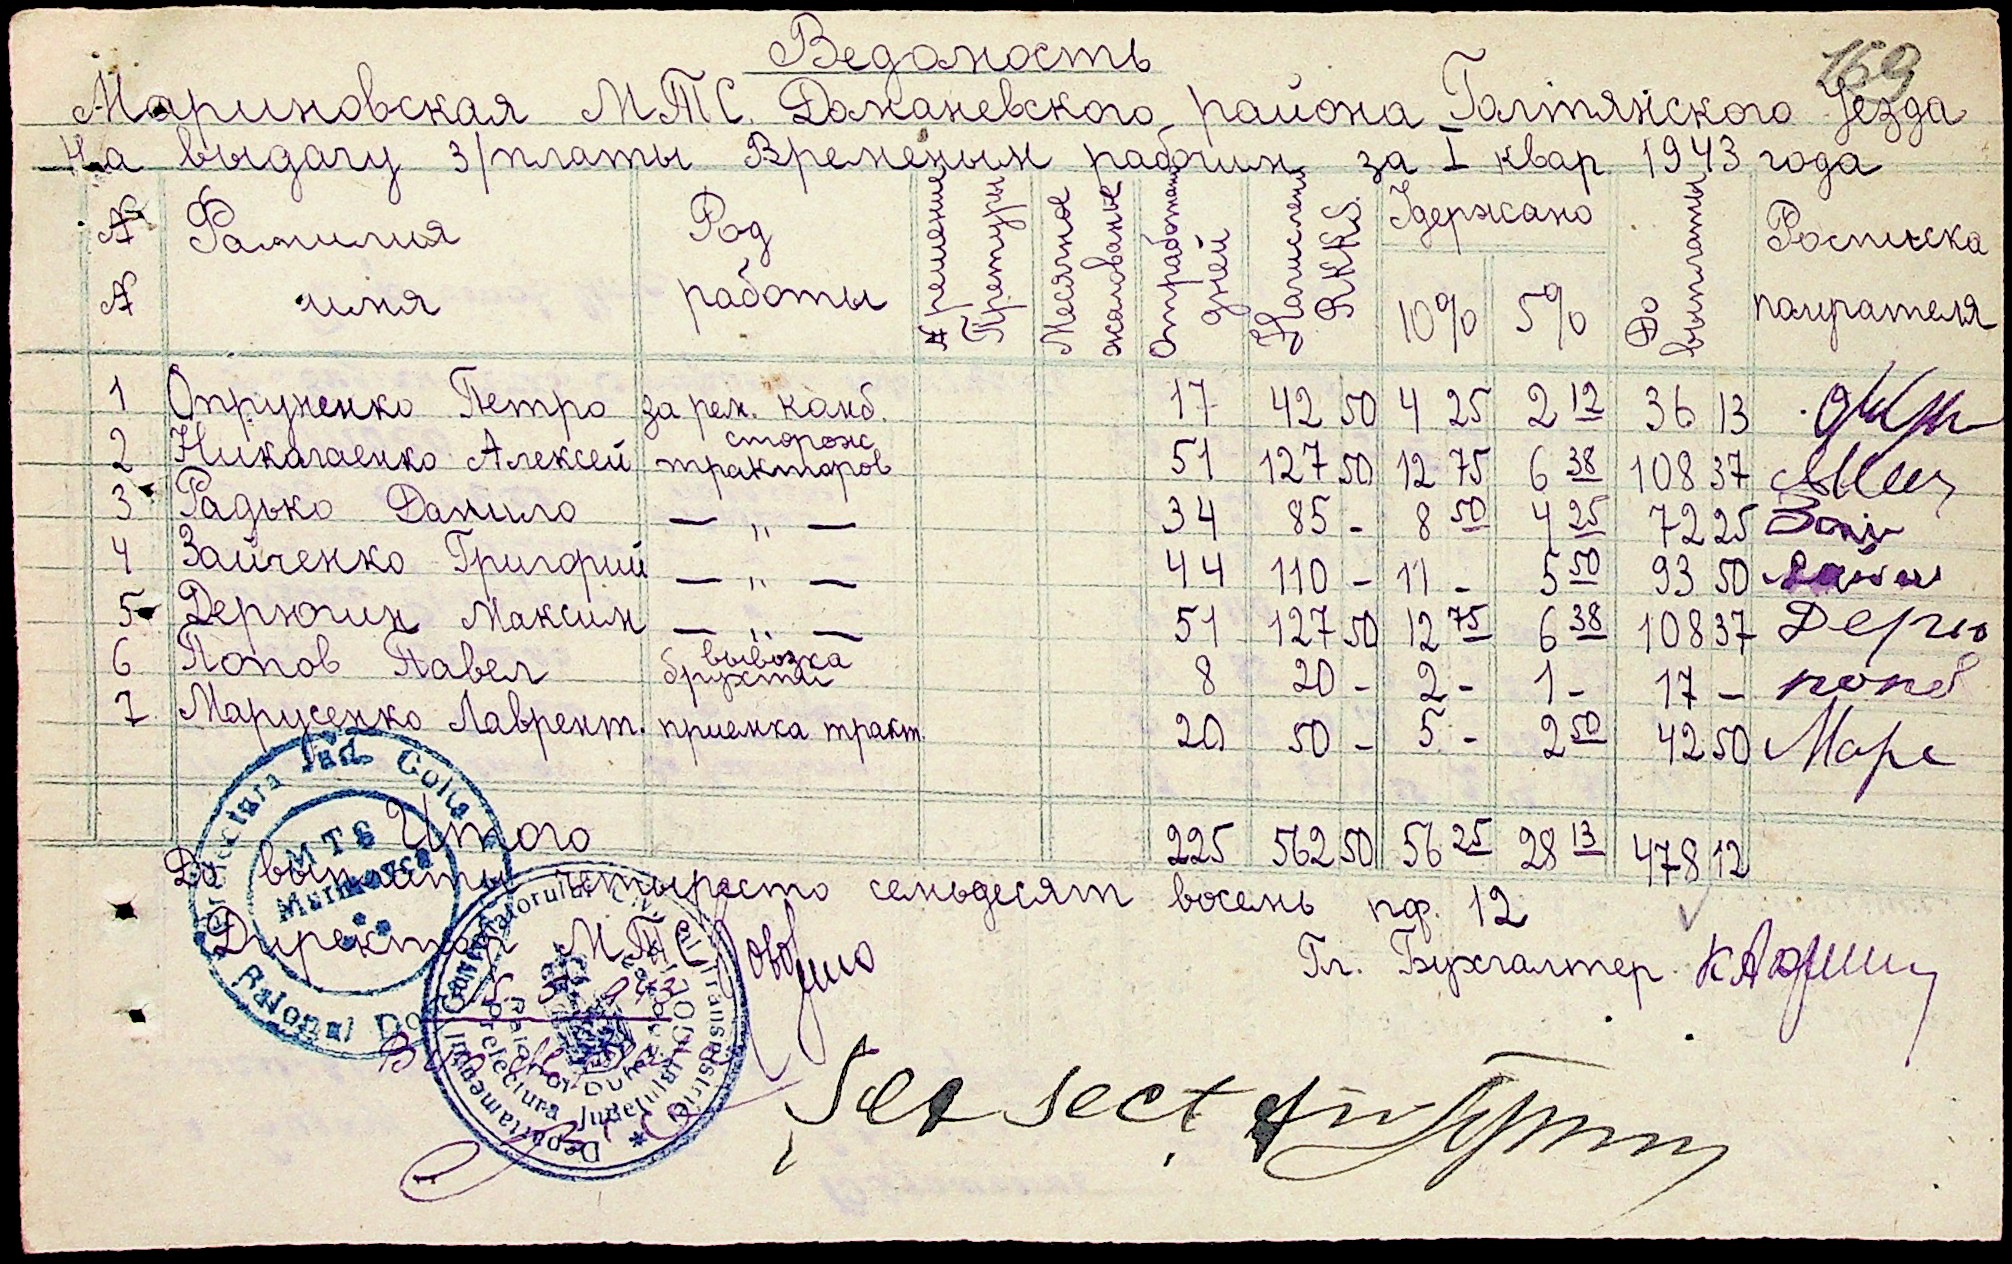 169
Ведомость
Мариновская МТС. Доманевского района Голтянского Уезда
На выдачу з/платы Временым рабочим за I квар 1943 года
№ № Фамилия имя Род работы # решение Претуры Месячное жалованье Отработано дней Начислено RKKS. Удержано 10% 5% До выплаты Росписка получателя
1 Опруненко Петро за рем. комб. 17 42 50 4 25 2 12 36 13
2 Николаенко Алексей сторож тракторов 51 127 50 12 75 6 38 108 37
3 Радько Данило — „ — 34 85 - 8 50 4 25 72 25
4 Зайченко Григорий — „ — 44 110 - 11 - 5 50 93 50
5 Дерюгин Максим — „ — 51 127 50 12 75 6 38 108 37 Дерю
6 Попов Павел вывозка брухты 8 20 - 2 - 1 - 17 - попов
7 Марусенко Лаврент. приемка тракт. 20 50 - 5 - 2 50 42 50 Мары
Итого 225 562 50 56 25 28 13 478 12
До выплаты четыреста семьдесят восемь пф. 12
Директор МТС Гл. Бухгалтер
Prefectura Jud. Golta
MTS
Marinovca
Raionul Do
Guvernatorului Civil al Transnistriei
Prefectura Judetului Golta
Sef sect